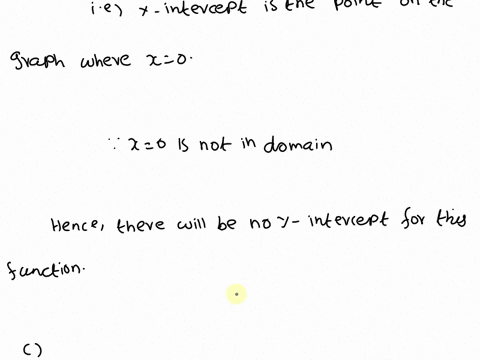 i.e) y-intercept is the point on the
graph where x=0.
∵ x=0 is not in domain
Hence, there will be no y-intercept for this
function.
c)